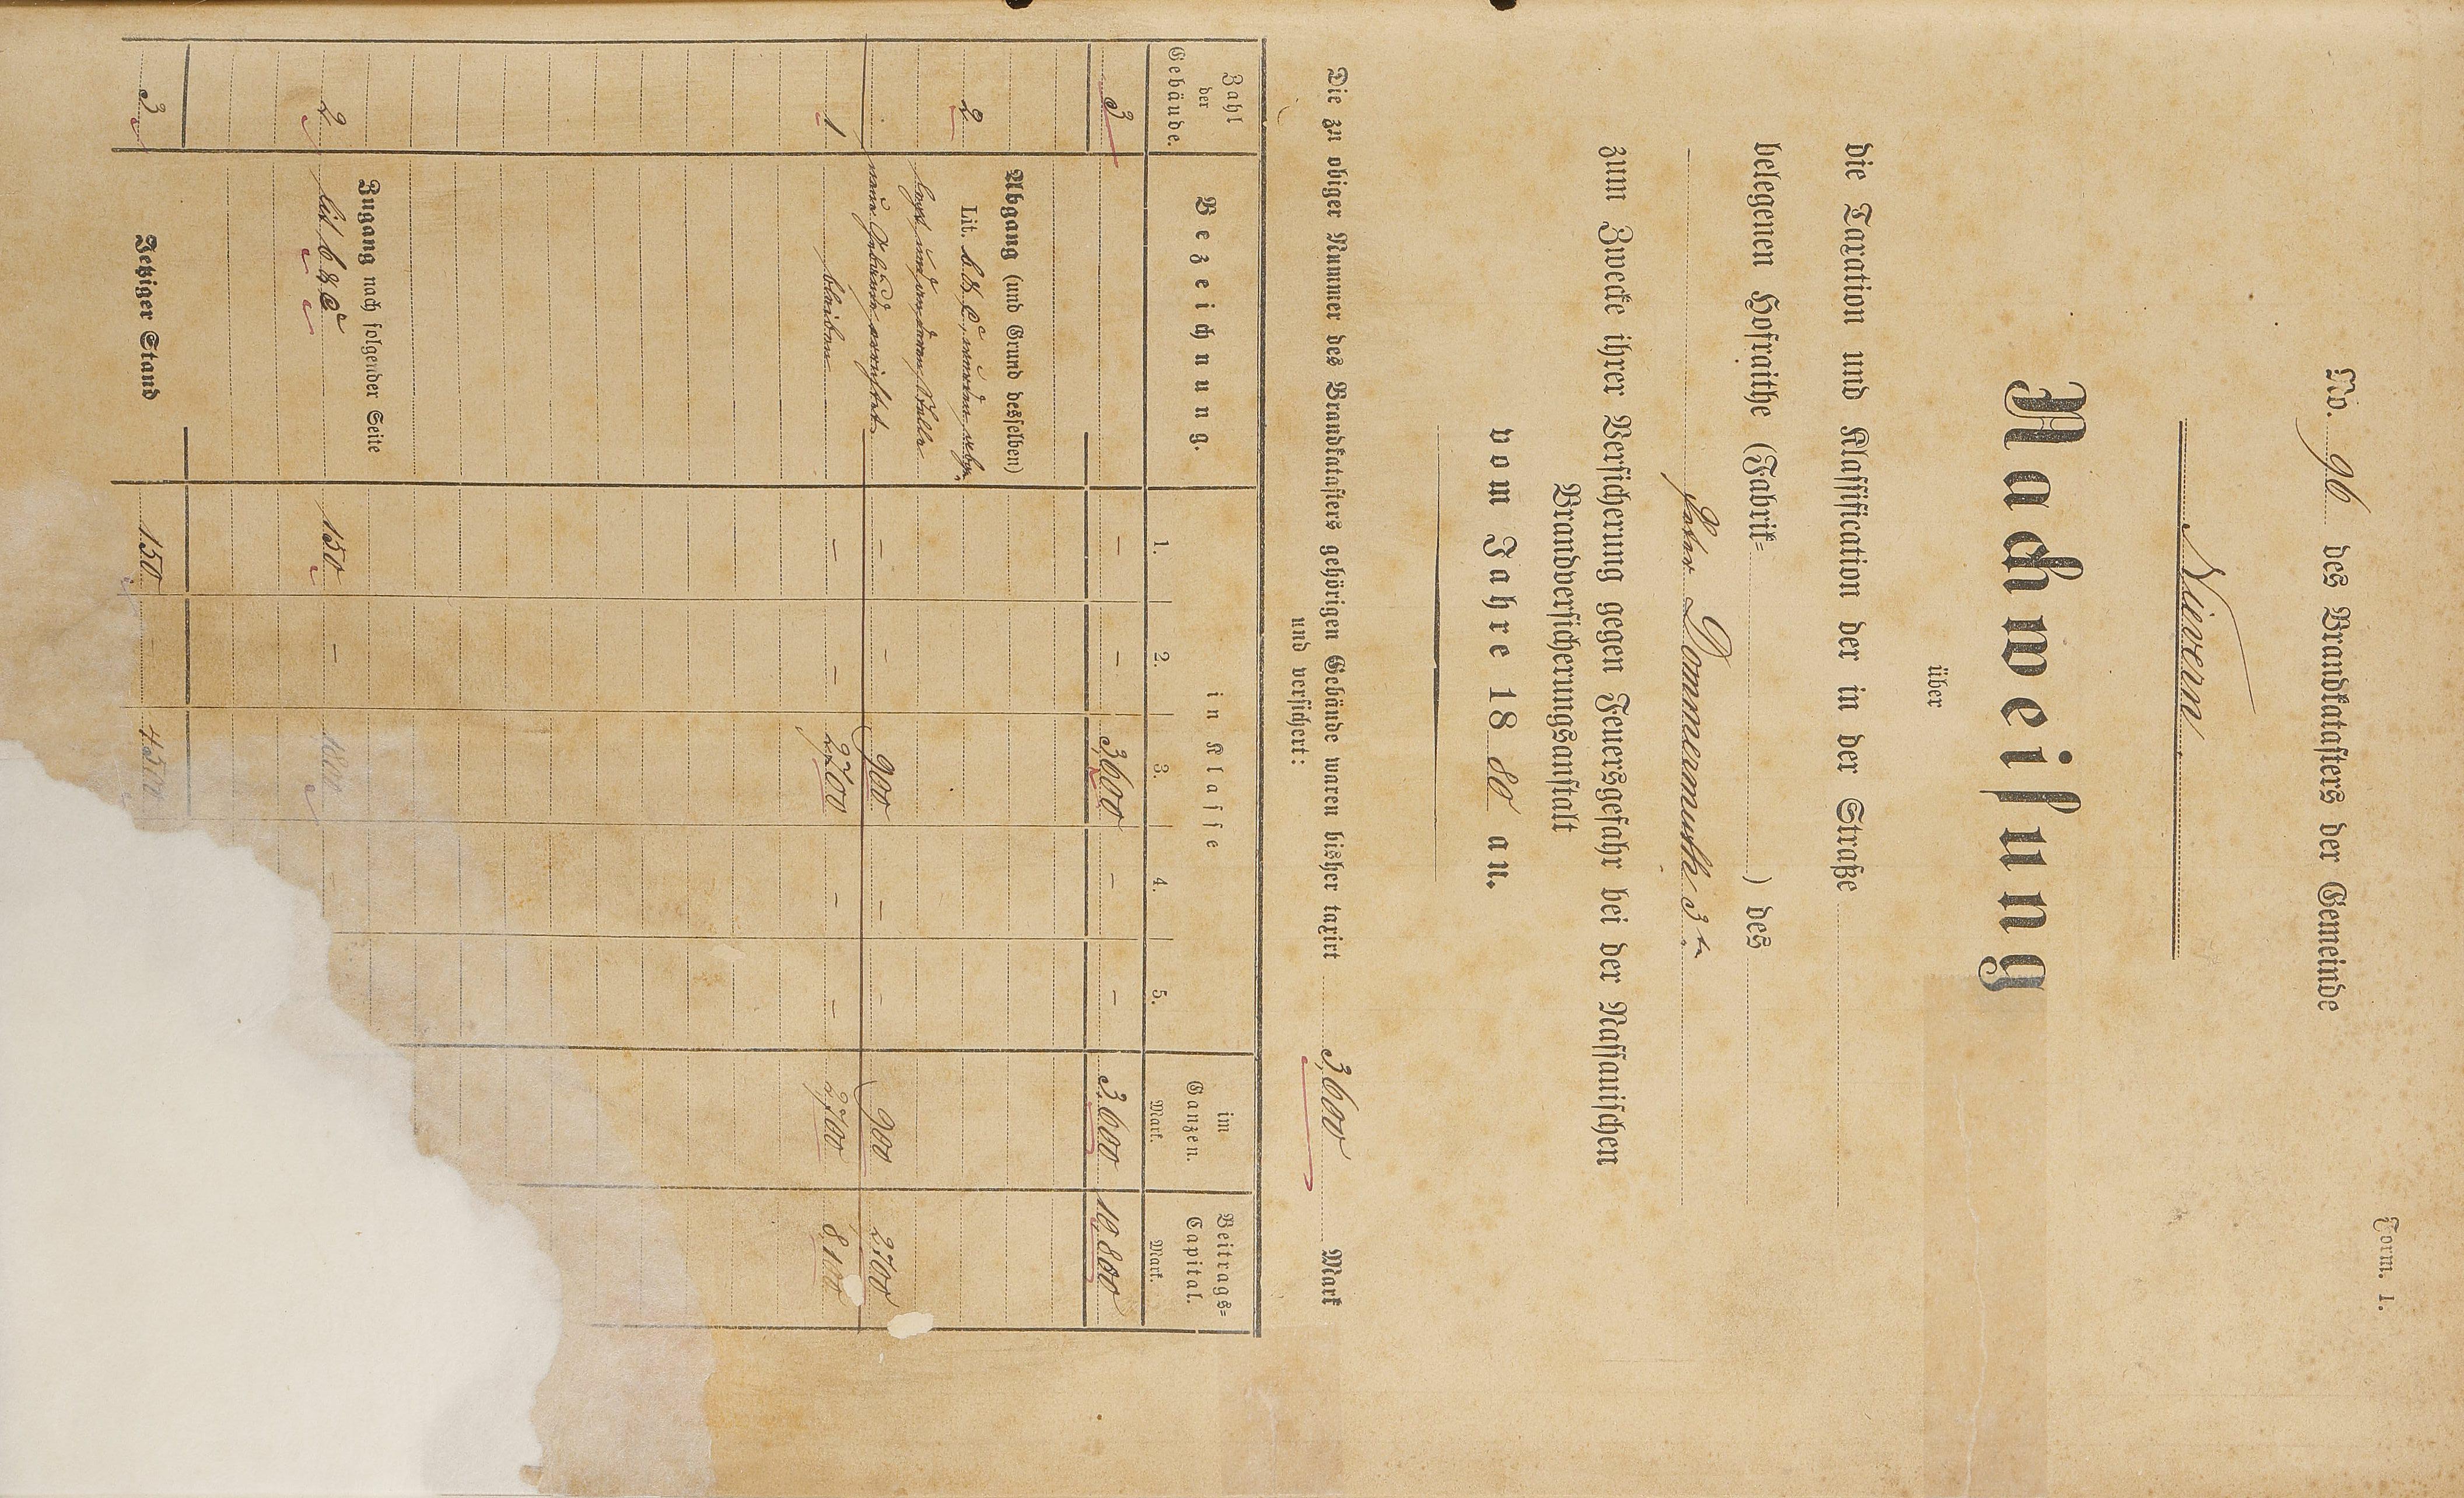 Form. 1.
No. 96 des Brandkatasters der Gemeinde
Nievern.
Nachweisung
über
die Taxation und Klassification der in der Straße
belegenen Hofraithe (Fabrik= ) des
Peter Dommermuth 3tr
zum Zwecke ihrer Versicherung gegen Feuersgefahr bei der Nassauischen
Brandversicherungsanstalt
vom Jahre 1880 an.
Die zu obiger Nummer des Brandkatasters gehörigen Gebäude waren bisher taxirt 3,600 Mark
und versichert:
Zahl der Gebäude. Bezeichnung. in Klasse im Ganzen. Beitrags=Capital.
1. 2. 3. 4. 5. Mark. Mark.
3 – – 3,600 – – 3,600 10,800
Abgang (und Grund desselben)
2 Lit. b & c, wurden abge-
legt und an deren Stelle
neue Gebäude errichtet. – – 900 – – 900 2,700
1 bleiben – – 2,700 – – 2,700 8,100
Zugang nach folgender Seite
2 lit b & c 150 – 1800 –
Jetziger Stand
3 150 – 4500